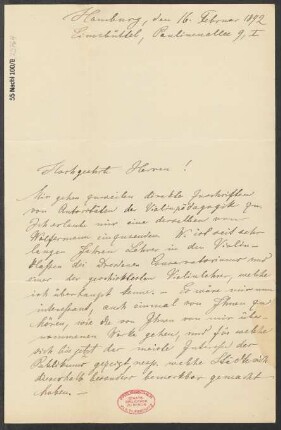 Hamburg, den 16. Februar 1892
Eimsbüttel, Paulinenallee 9, I
55 Nachl 100/B
Hochgeehrte Herren!
Mir gehen zuweilen direkte Zuschriften
von Autoritäten der Violinpädagogik zu,
Ich erlaube mir eine derselben von
Wolfermann einzusenden. W. ist seit sehr
langen Jahren Lehrer in den Violin-
klassen des Dresdener Conservatoriums und
einer der geschicktesten Violinlehrer, welche
ich überhaupt kenne. – Es wäre mir nun
interessant, auch einmal von Ihnen zu
hören, wie die von Ihnen von mir über-
nommenen Werke gehen, und für welche
sich bis jetzt der meiste Zuspruch des
Publikums gezeigt, resp. welche Städte sich
dieserhalb besonders bemerkbar gemacht
haben. –